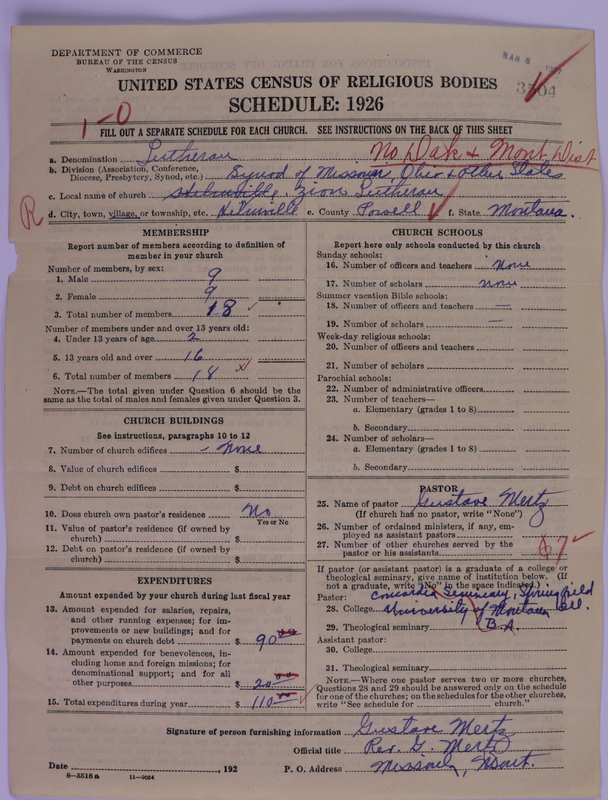 DEPARTMENT OF COMMERCE
BUREAU OF THE CENSUS
WASHINGTON
MAR 8
3504
UNITED STATES CENSUS OF RELIGIOUS BODIES
SCHEDULE: 1926
1-0
FILL OUT A SEPARATE SCHEDULE FOR EACH CHURCH. SEE INSTRUCTIONS ON THE BACK OF THIS SHEET
a. Denomination Lutheran No Dak & Mont Dist
b. Division (Association, Conference,
Diocese, Presbytery, Synod, etc.) Synod of Missouri, Ohio & other States
c. Local name of church Helmville, Zion Lutheran
R
d. City, town, village, or township, etc. Helmville e. County Powell f. State Montana.
MEMBERSHIP
Report number of members according to definition of
member in your church
Number of members, by sex:
1. Male 9
2. Female 9
3. Total number of members 18
Number of members under and over 13 years old:
4. Under 13 years of age 2
5. 13 years old and over 16
6. Total number of members 18
NOTE.—The total given under Question 6 should be the
same as the total of males and females given under Question 3.
CHURCH BUILDINGS
See instructions, paragraphs 10 to 12
7. Number of church edifices - None
8. Value of church edifices $
9. Debt on church edifices $
10. Does church own pastor's residence No
Yes or No
11. Value of pastor's residence (if owned by
church) $
12. Debt on pastor's residence (if owned by
church) $
EXPENDITURES
Amount expended by your church during last fiscal year
13. Amount expended for salaries, repairs,
and other running expenses; for im-
provements or new buildings; and for
payments on church debt $ 90 00
14. Amount expended for benevolences, in-
cluding home and foreign missions; for
denominational support; and for all
other purposes $ 20 00
15. Total expenditures during year $ 110 00
CHURCH SCHOOLS
Report here only schools conducted by this church
Sunday schools:
16. Number of officers and teachers None
17. Number of scholars none
Summer vacation Bible schools:
18. Number of officers and teachers —
19. Number of scholars —
Week-day religious schools:
20. Number of officers and teachers
21. Number of scholars
Parochial schools:
22. Number of administrative officers
23. Number of teachers—
a. Elementary (grades 1 to 8)
b. Secondary
24. Number of scholars—
a. Elementary (grades 1 to 8)
b. Secondary
PASTOR
25. Name of pastor Gustave Mertz
(If church has no pastor, write "None")
26. Number of ordained ministers, if any, em-
ployed as assistant pastors
27. Number of other churches served by the
pastor or his assistants 7
If pastor (or assistant pastor) is a graduate of a college or
theological seminary, give name of institution below. (If
not a graduate, write "No" in the space indicated.)
Pastor: Concordia Seminary, Springfield
28. College University of Montana Ill.
29. Theological seminary B.A.
Assistant pastor:
30. College
31. Theological seminary
NOTE.—Where one pastor serves two or more churches,
Questions 28 and 29 should be answered only on the schedule
for one of the churches; on the schedules for the other churches,
write "See schedule for church."
Signature of person furnishing information Gustave Mertz
Official title Rev. G. Mertz
Date , 192 P. O. Address Missoula, Mont.
8-5518 a 11-9054